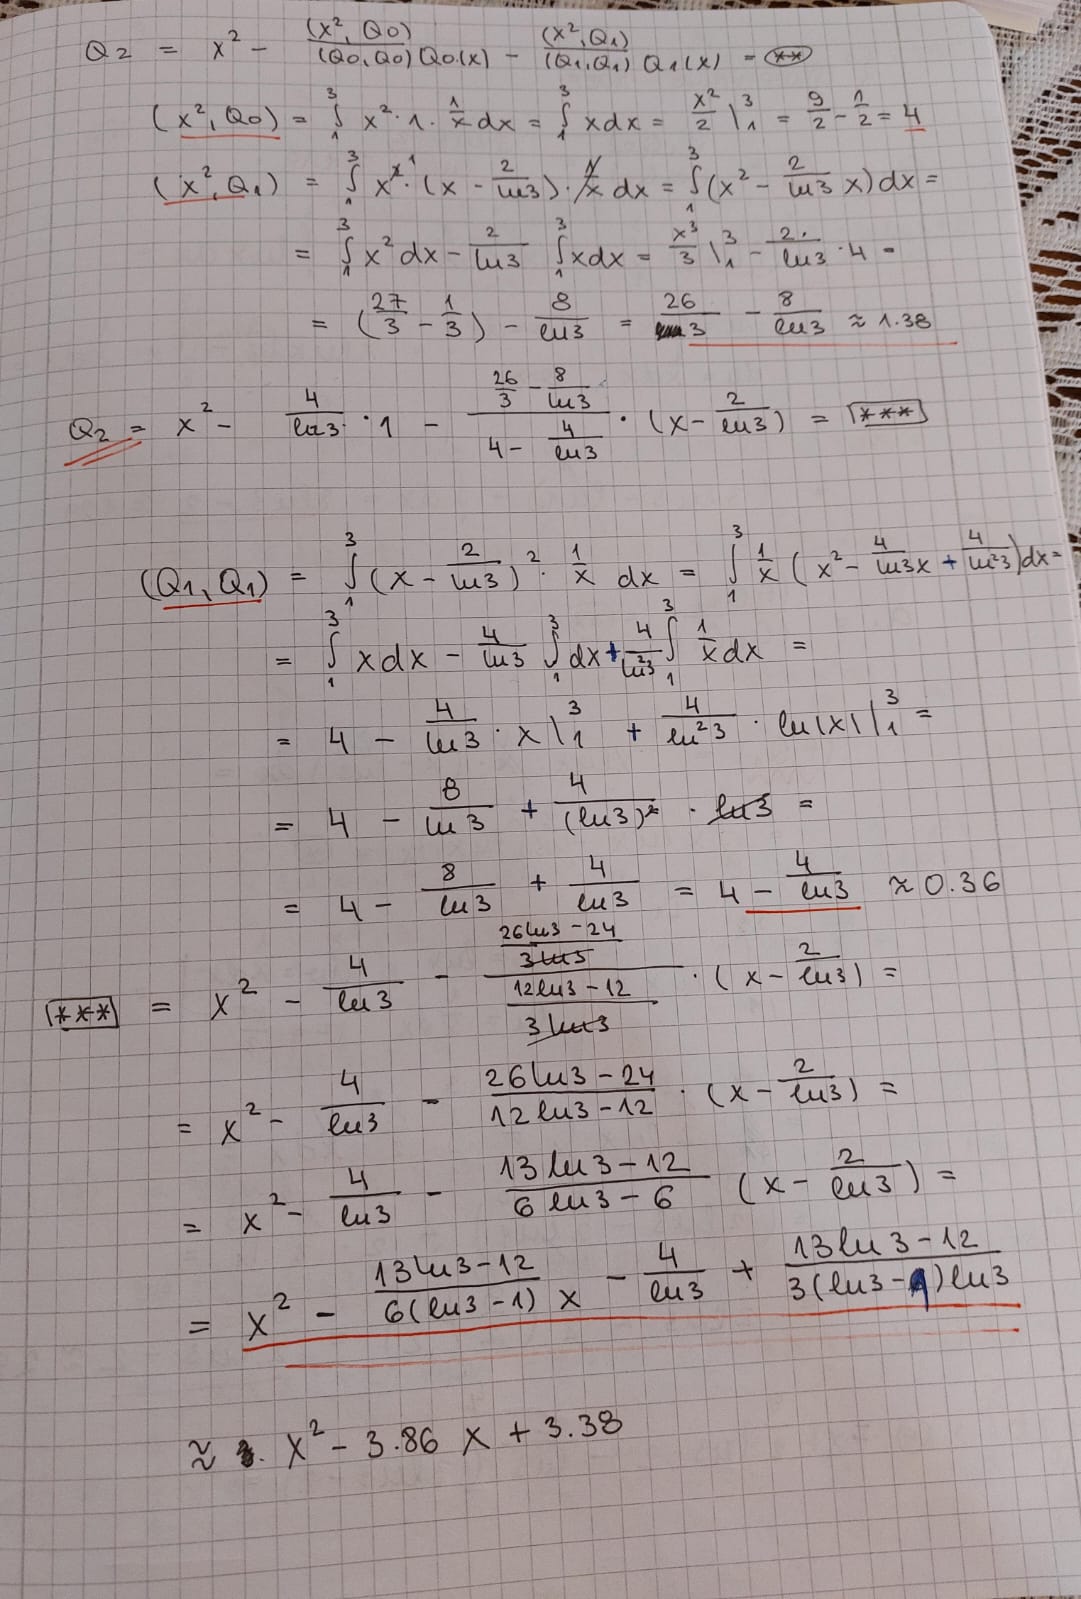 Q2 = x² - (x², Q0)/(Q0, Q0) Q0(x) - (x², Q1)/(Q1, Q1) Q1(x) = (**)
(x², Q0) = ∫₁³ x² · 1 · 1/x dx = ∫₁³ x dx = x²/2 |₁³ = 9/2 - 1/2 = 4
(x², Q1) = ∫₁³ x² · (x - 2/ln3) · 1/x dx = ∫₁³ (x² - 2/ln3 x) dx =
= ∫₁³ x² dx - 2/ln3 ∫₁³ x dx = x³/3 |₁³ - 2/ln3 · 4 =
= (27/3 - 1/3) - 8/ln3 = 26/3 - 8/ln3 ≈ 1.38
Q2 = x² - 4/ln3 · 1 - (26/3 - 8/ln3)/(4 - 4/ln3) · (x - 2/ln3) = [***]
(Q1, Q1) = ∫₁³ (x - 2/ln3)² · 1/x dx = ∫₁³ 1/x (x² - 4/ln3 x + 4/ln²3) dx =
= ∫₁³ x dx - 4/ln3 ∫₁³ dx + 4/ln²3 ∫₁³ 1/x dx =
= 4 - 4/ln3 · x |₁³ + 4/ln²3 · ln|x| |₁³ =
= 4 - 8/ln3 + 4/(ln3)² · ln3 =
= 4 - 8/ln3 + 4/ln3 = 4 - 4/ln3 ≈ 0.36
[***] = x² - 4/ln3 - ((26ln3 - 24)/(3ln3))/((12ln3 - 12)/(3ln3)) · (x - 2/ln3) =
= x² - 4/ln3 - (26ln3 - 24)/(12ln3 - 12) · (x - 2/ln3) =
= x² - 4/ln3 - (13ln3 - 12)/(6ln3 - 6) (x - 2/ln3) =
= x² - (13ln3 - 12)/(6(ln3 - 1)) x - 4/ln3 + (13ln3 - 12)/(3(ln3 - 1)ln3)
≈ x² - 3.86 x + 3.38